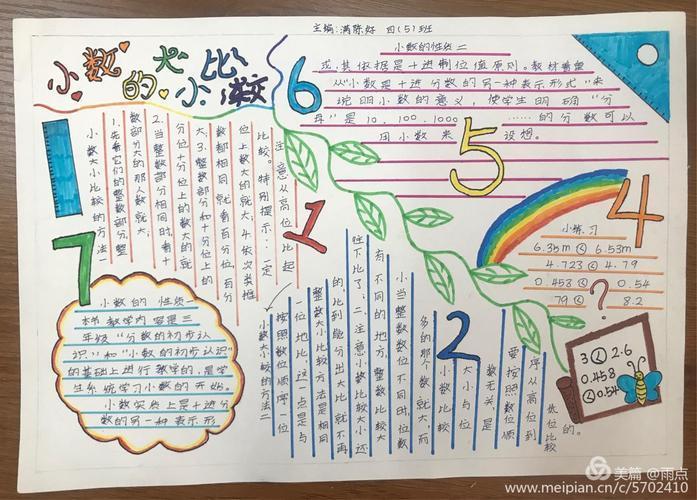 主编:满陈好 四(5)班
小数的大小比较
小数大小比较的方法一
1.先看它们的整数部分,整
数部分大的那人数就大;
2.当整数部分相同时,看十
分位十分位上的数大的就
大;3.整数部分和十分位上的
数都相同就看百分位,百分
位上数大的就大;4.依次类推
比较。特别提示:一定
注意从高位比起
小数的性质二
或,其依据是十进制位值原则。教材着重
从“小数是十进分数的另一种表示形式”来
说明小数的意义,使学生明确“分
母”是10,100,1000……的分数可以
用小数来设想。
6
5
4
1
7
2
小练习
6.35m < 6.53m
4.723 < 4.79
0.458 < 0.54
79 < 8.2
?
3 < 2.6
0.458
< 0.54
小数的 性质一
本书教学内容是三
年级“分数的初步认
识”和“小数的初步认识”
的基础上进行教学的,是学
生系统学习小数的开始。
小数实质上是十进分
数的另一种表示形
小数大小较的方法二
按照数位顺序一位
位地比,这一点是与
整数大小比较方法是相同
的,比到能分出大比就不再
往下比了;二.注意小数比较大小还
有不同的地方,整数比较大
小当整数位数不同时,位数
多的那个数就大,而
小数比较
大小与位
数无关,是
要按照数位顺
序从高位到
低位比较
的。
美篇 @雨点
www.meipian.cn/c/5702410